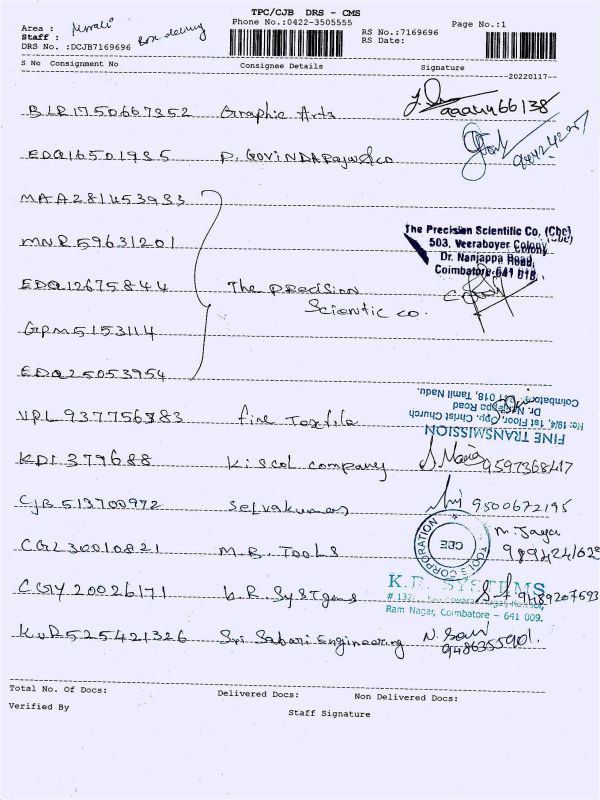 TPC/CJB DRS - CMS
Area : Murali Box delivery Phone No.:0422-3505555 Page No.:1
Staff : RS No.:7169696
DRS No. :DCJB7169696 RS Date:
S No Consignment No Consignee Details Signature
20220117
BLR1750667352 Graphic Arts 66138
EDQ16501935 P. GOVINDARajulu&co
MAA281453933
The Precision Scientific Co. (Cbe)
MNR59631201 503, Veeraboyer Colony
Dr. Nanjappa Road,
Coimbatore-641 018.
EDQ12675844 The Precision
Scientic co.
GPM5153114
EDQ25053954
FINE TRANSMISSION
No: 19/4, 1st Floor, Opp. Christ Church
Dr. Nanjappa Road
Coimbatore - 641 018, Tamil Nadu.
VPL937756383 fine Textile
KDI379688 Kiscol company S. Maria 9597368417
CJB513700972 Selvakumar 9500672195
CGL30010821 M.B. TOOLS TOOLS CORPORATION CBE M. Jaya
CGY20026171 K.R. Systems K.R. SYSTEMS 9489207593
Ram Nagar, Coimbatore – 641 009.
KUR525421326 Sri Sabari Engineering N. 9486355901.
Total No. Of Docs: Delivered Docs: Non Delivered Docs:
Verified By Staff Signature